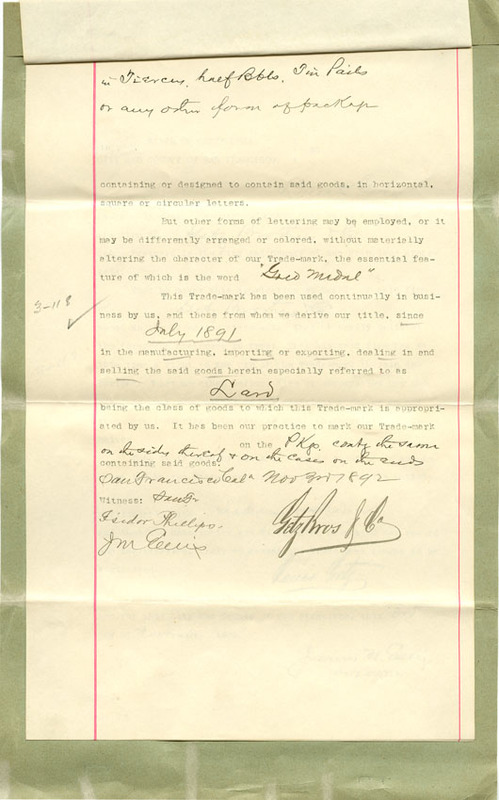 in Tierces, half Bbls, Tin Pails
or any other form of package
containing or designed to contain said goods, in horizontal,
square or circular letters.
But other forms of lettering may be employed, or it
may be differently arranged or colored, without materially
altering the character of our Trade-mark, the essential fea-
ture of which is the word "Gold Medal"
This Trade-mark has been used continually in busi-
3-118
ness by us, and those from whom we derive our title, since
July 1891
in the manufacturing, importing or exporting, dealing in and
selling the said goods herein especially referred to as
Lard
being the class of goods to which this Trade-mark is appropri-
ated by us. It has been our practice to mark our Trade-mark
on the Pkgs, contg the same
on the sides thereof & on the cases on the ends
containing said goods.
San Francisco Cala Nov 1892
Witness:
Isidor Phillips.
Getz Bros & Co